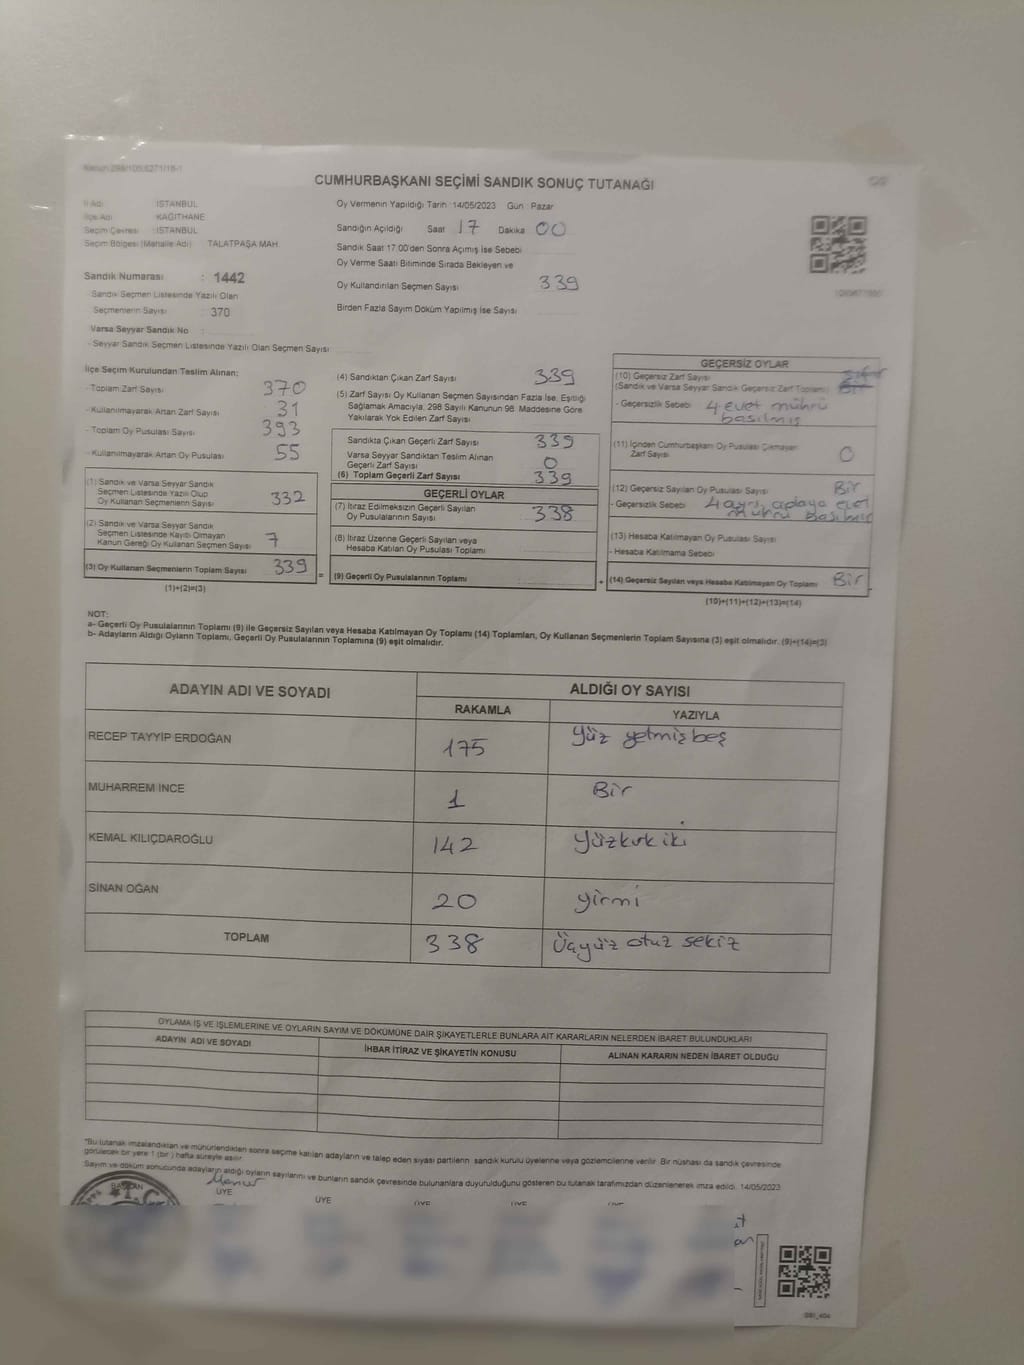 Kanun:298/105;6271/16-1
CUMHURBAŞKANI SEÇİMİ SANDIK SONUÇ TUTANAĞI
İl Adı : İSTANBUL
İlçe Adı : KAĞITHANE
Seçim Çevresi : İSTANBUL
Seçim Bölgesi (Mahalle Adı) : TALATPAŞA MAH.
Sandık Numarası : 1442
- Sandık Seçmen Listesinde Yazılı Olan
Seçmenlerin Sayısı : 370
Varsa Seyyar Sandık No :
- Seyyar Sandık Seçmen Listesinde Yazılı Olan Seçmen Sayısı
Oy Vermenin Yapıldığı Tarih :14/05/2023 Gün : Pazar
Sandığın Açıldığı Saat 17 Dakika 00
Sandık Saat 17:00'den Sonra Açımış İse Sebebi
Oy Verme Saati Bitiminde Sırada Bekleyen ve
Oy Kullandırılan Seçmen Sayısı 339
Birden Fazla Sayım Döküm Yapılmış İse Sayısı
İlçe Seçim Kurulundan Teslim Alınan:
- Toplam Zarf Sayısı 370
- Kullanılmayarak Artan Zarf Sayısı 31
- Toplam Oy Pusulası Sayısı 393
- Kullanılmayarak Artan Oy Pusulası 55
(1) Sandık ve Varsa Seyyar Sandık
Seçmen Listesinde Yazılı Olup
Oy Kullanan Seçmenlerin Sayısı 332
(2) Sandık ve Varsa Seyyar Sandık
Seçmen Listesinde Kayıtlı Olmayan
Kanun Gereği Oy Kullanan Seçmen Sayısı 7
(3) Oy Kullanan Seçmenlerin Toplam Sayısı 339
(1)+(2)=(3)
(4) Sandıktan Çıkan Zarf Sayısı 339
(5) Zarf Sayısı Oy Kullanan Seçmen Sayısından Fazla İse, Eşitliği
Sağlamak Amacıyla, 298 Sayılı Kanunun 98. Maddesine Göre
Yakılarak Yok Edilen Zarf Sayısı
Sandıkta Çıkan Geçerli Zarf Sayısı 339
Varsa Seyyar Sandıktan Teslim Alınan
Geçerli Zarf Sayısı 0
(6) Toplam Geçerli Zarf Sayısı 339
GEÇERLİ OYLAR
(7) İtiraz Edilmeksizin Geçerli Sayılan
Oy Pusulalarının Sayısı 338
(8) İtiraz Üzerine Geçerli Sayılan veya
Hesaba Katılan Oy Pusulası Toplamı
= (9) Geçerli Oy Pusulalarının Toplamı +
GEÇERSİZ OYLAR
(10) Geçersiz Zarf Sayısı
(Sandık ve Varsa Seyyar Sandık Geçersiz Zarf Toplamı) Bir
- Geçersizlik Sebebi 4 evet mührü
basılmış
(11) İçinden Cumhurbaşkanı Oy Pusulası Çıkmayan
Zarf Sayısı 0
(12) Geçersiz Sayılan Oy Pusulası Sayısı Bir
- Geçersizlik Sebebi 4 ayrı adaya evet
mührü basılmış
(13) Hesaba Katılmayan Oy Pusulası Sayısı
- Hesaba Katılmama Sebebi
(14) Geçersiz Sayılan veya Hesaba Katılmayan Oy Toplamı Bir
(10)+(11)+(12)+(13)=(14)
NOT:
a- Geçerli Oy Pusulalarının Toplamı (9) ile Geçersiz Sayılan veya Hesaba Katılmayan Oy Toplamı (14) Toplamları, Oy Kullanan Seçmenlerin Toplam Sayısına (3) eşit olmalıdır. (9)+(14)=(3)
b- Adayların Aldığı Oyların Toplamı, Geçerli Oy Pusulalarının Toplamına (9) eşit olmalıdır.
ADAYIN ADI VE SOYADI ALDIĞI OY SAYISI
RAKAMLA YAZIYLA
RECEP TAYYİP ERDOĞAN 175 Yüz yetmiş beş
MUHARREM İNCE 1 Bir
KEMAL KILIÇDAROĞLU 142 Yüzkırk iki
SİNAN OĞAN 20 yirmi
TOPLAM 338 Üçyüz otuz sekiz
OYLAMA İŞ VE İŞLEMLERİNE VE OYLARIN SAYIM VE DÖKÜMÜNE DAİR ŞİKAYETLERLE BUNLARA AİT KARARLARIN NELERDEN İBARET BULUNDUKLARI
ADAYIN ADI VE SOYADI İHBAR İTİRAZ VE ŞİKAYETİN KONUSU ALINAN KARARIN NEDEN İBARET OLDUĞU
*Bu tutanak imzalandıktan ve mühürlendikten sonra seçime katılan adayların ve talep eden siyasi partilerin sandık kurulu üyelerine veya gözlemcilerine verilir. Bir nüshası da sandık çevresinde
görülecek bir yere 1 (bir) hafta süreyle asılır.
Sayım ve döküm sonucunda adayların aldığı oyların sayılarını ve bunların sandık çevresinde bulunanlara duyurulduğunu gösteren bu tutanak tarafımızdan düzenlenerek imza edildi. 14/05/2023
BAŞKAN
ÜYE ÜYE ÜYE ÜYE ÜYE